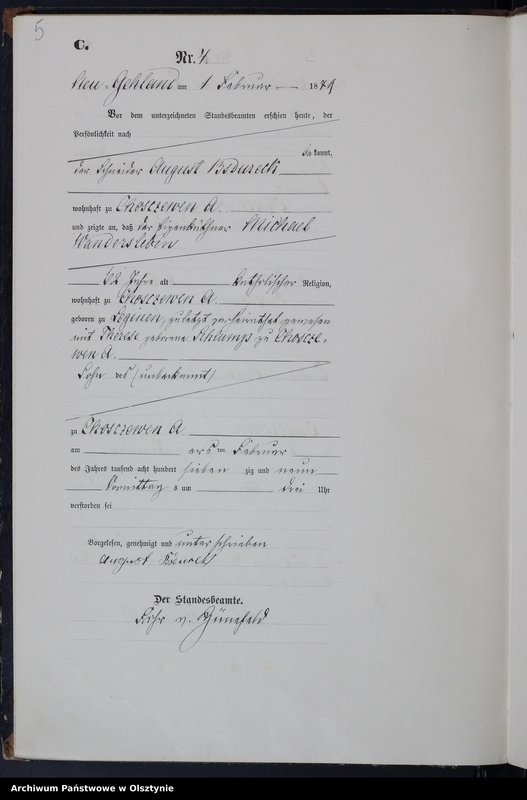 5
C.
Nr. 4.
Neu-Gehland am 1 Februar 1879
Vor dem unterzeichneten Standesbeamten erschien heute, der
Persönlichkeit nach
kannt,
der Schneider August
wohnhaft zu Choszewen A.
und zeigte an, daß der Eigenkäthner Michael
Wandersleben
62 Jahre alt katholischer Religion,
wohnhaft zu Choszewen A.
geboren zu Leginen, zuletzt verheirathet gewesen
mit Therese geborene zu Choszewen A.
Sohn des (unbekannt)
zu Choszewen A
am ersten Februar
des Jahres tausend acht hundert sieben zig und neun
Vormittag s um drei Uhr
verstorben sei
Vorgelesen, genehmigt und unterschrieben
August
Der Standesbeamte.
Archiwum Państwowe w Olsztynie